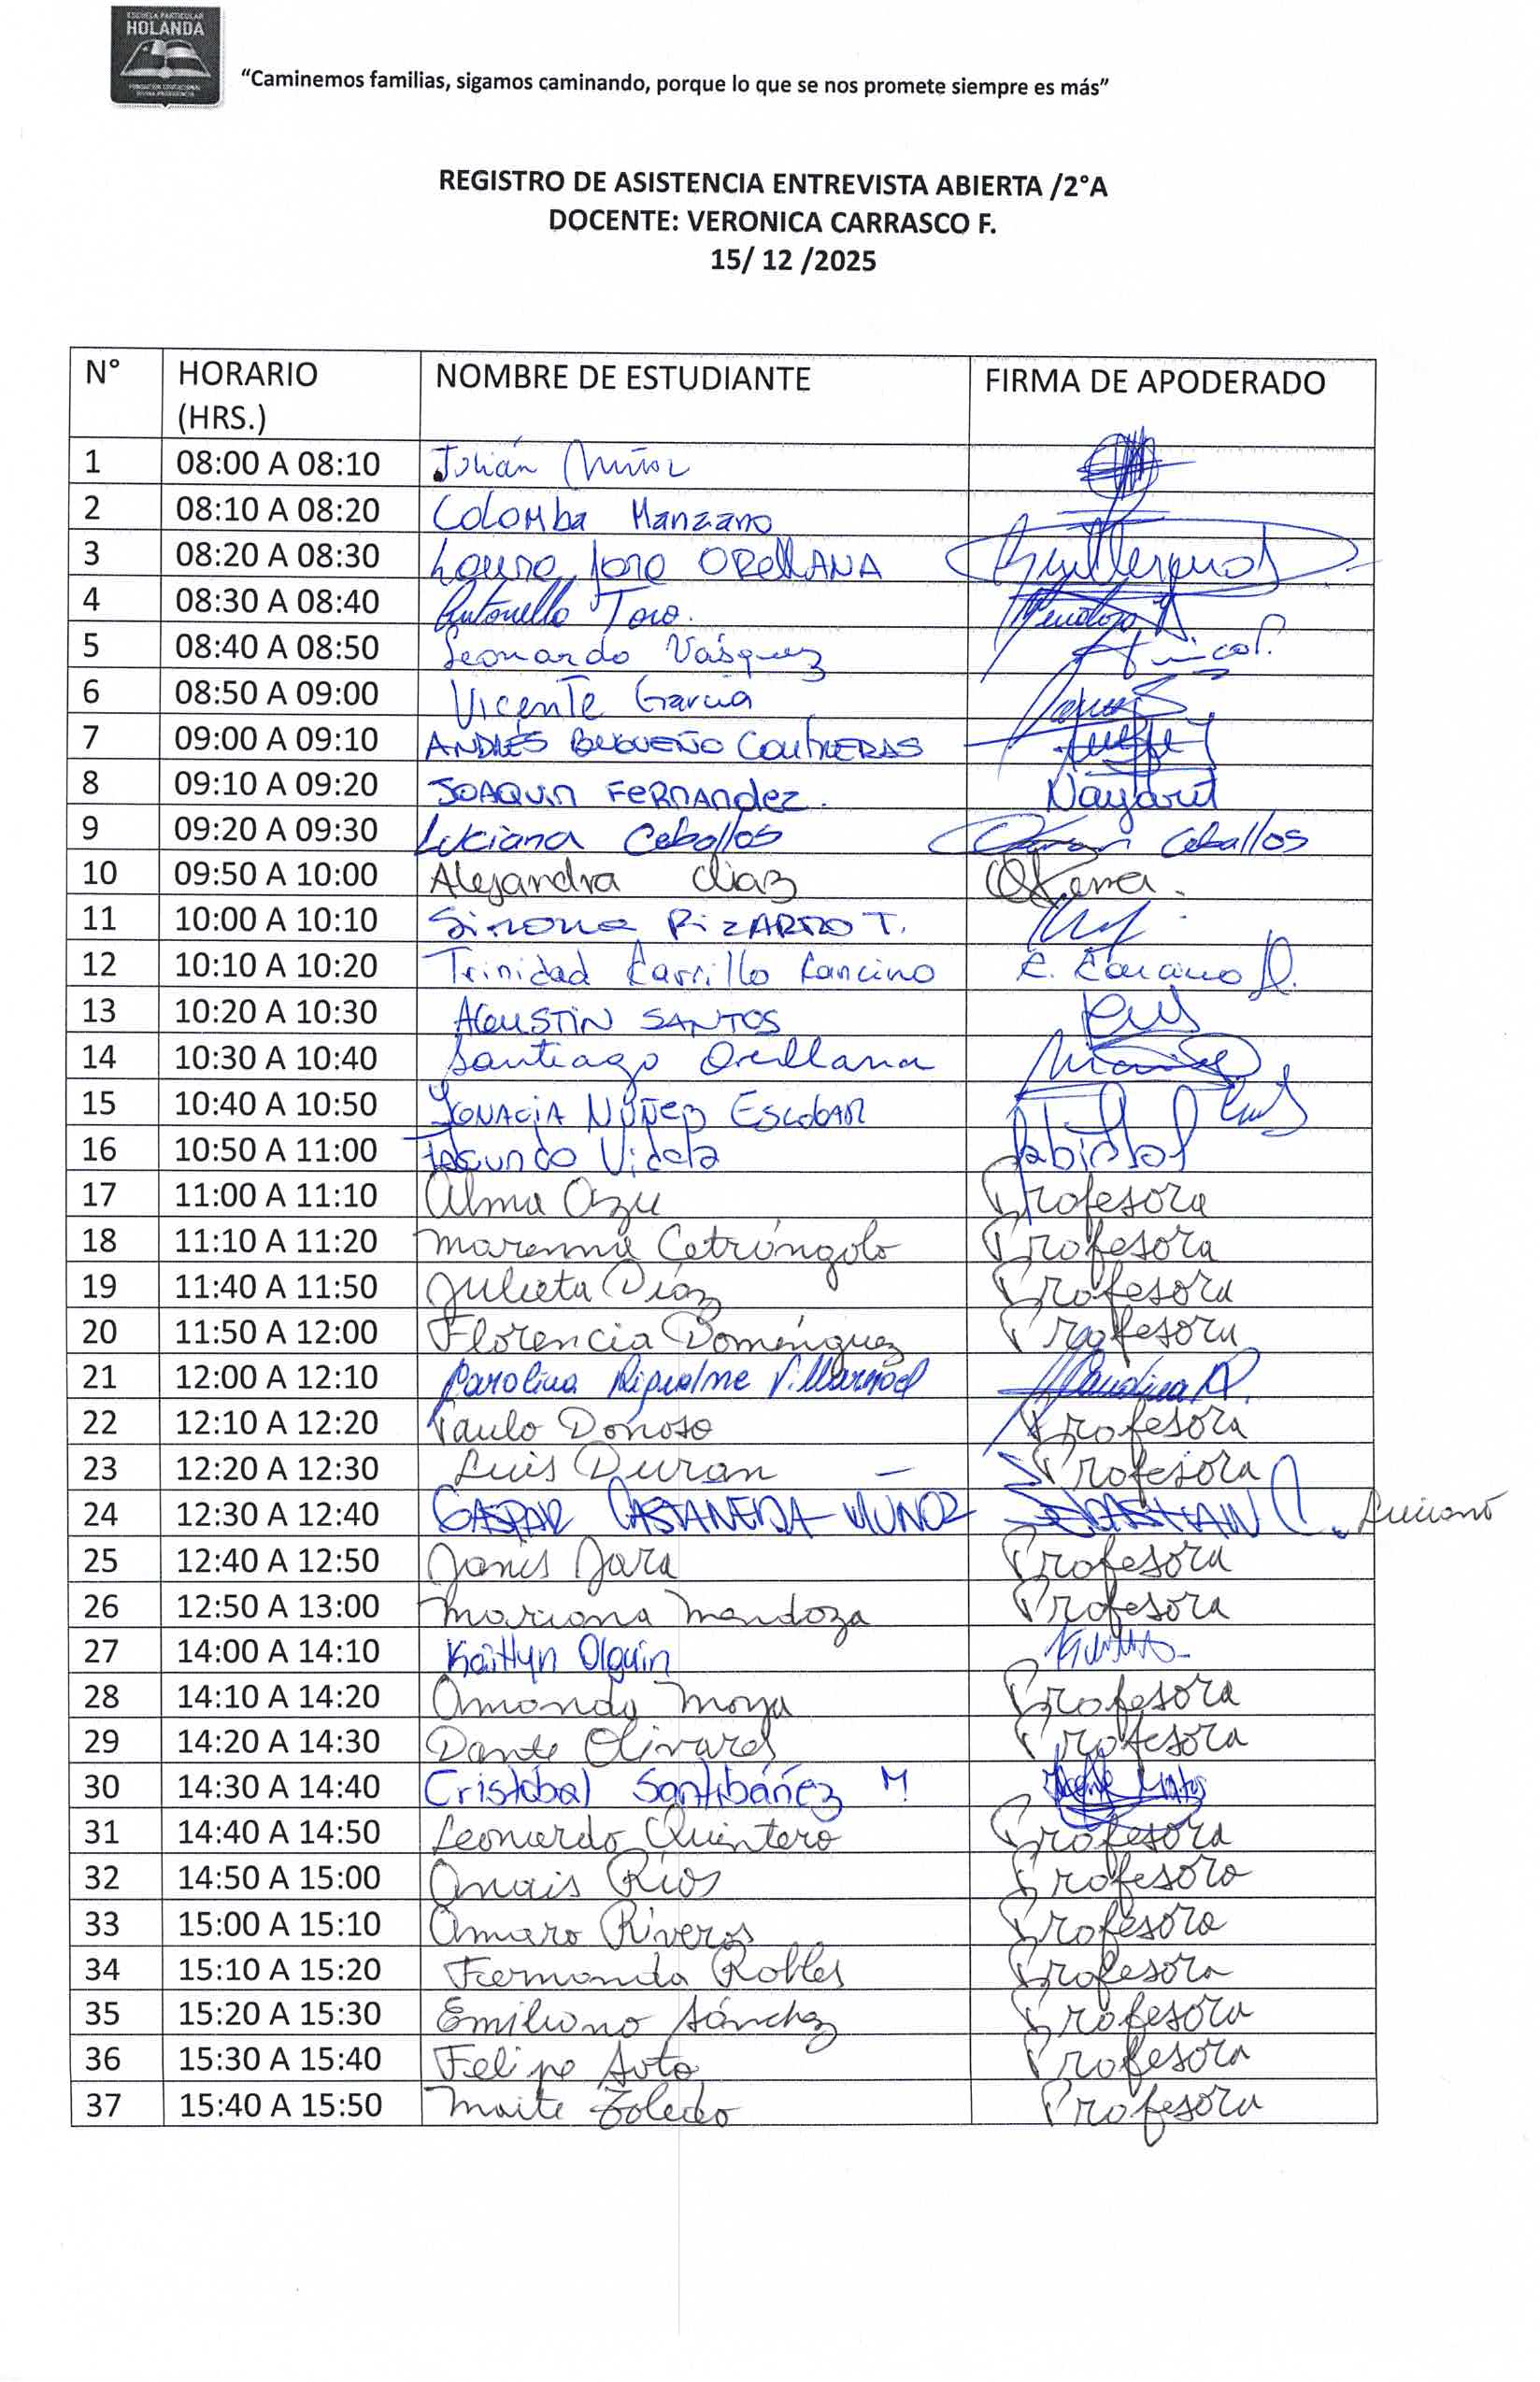 ESCUELA PARTICULAR
HOLANDA
FUNDACIÓN EDUCACIONAL
DIVINA PROVIDENCIA
“Caminemos familias, sigamos caminando, porque lo que se nos promete siempre es más”
REGISTRO DE ASISTENCIA ENTREVISTA ABIERTA /2°A
DOCENTE: VERONICA CARRASCO F.
15/ 12 /2025
N° HORARIO (HRS.) NOMBRE DE ESTUDIANTE FIRMA DE APODERADO
1 08:00 A 08:10 Julián Muñoz
2 08:10 A 08:20 Colomba Manzano
3 08:20 A 08:30 ORellANA
4 08:30 A 08:40 Antonella Toro.
5 08:40 A 08:50 Leonardo Vásquez
6 08:50 A 09:00 Vicente Garcia
7 09:00 A 09:10 ANDRÉS CONTRERAS
8 09:10 A 09:20 JOAQUIN FERNANdez. Nayaret
9 09:20 A 09:30 Luciana Ceballos Ceballos
10 09:50 A 10:00 Alejandra Diaz
11 10:00 A 10:10 Simona PizARRO T.
12 10:10 A 10:20 Trinidad Carrillo Cancino C. Cancino
13 10:20 A 10:30 AGUSTIN SANTOS
14 10:30 A 10:40 Santiago Orellana
15 10:40 A 10:50 IGNACIA NÚÑEZ ESCOBAR
16 10:50 A 11:00 Facundo Videla
17 11:00 A 11:10 Alma Profesora
18 11:10 A 11:20 Cetrángolo Profesora
19 11:40 A 11:50 Julieta Díaz Profesora
20 11:50 A 12:00 Florencia Domínguez Profesora
21 12:00 A 12:10 Carolina Riquelme Villarroel Claudina R.
22 12:10 A 12:20 Paulo Donoso Profesora
23 12:20 A 12:30 Luis Duran Profesora
24 12:30 A 12:40 GASPAR CASTAÑEDA MUÑOZ SEBASTIAN C. Luciano
25 12:40 A 12:50 Janis Jara Profesora
26 12:50 A 13:00 Mariana Mendoza Profesora
27 14:00 A 14:10 Kaitlyn Olguin
28 14:10 A 14:20 Amanda Moya Profesora
29 14:20 A 14:30 Dante Olivares Profesora
30 14:30 A 14:40 Cristóbal Santibáñez M
31 14:40 A 14:50 Leonardo Quintero Profesora
32 14:50 A 15:00 Anais Ríos Profesora
33 15:00 A 15:10 Amaro Riveros Profesora
34 15:10 A 15:20 Fernanda Robles Profesora
35 15:20 A 15:30 Emiliano Sánchez Profesora
36 15:30 A 15:40 Felipe Soto Profesora
37 15:40 A 15:50 Maite Toledo Profesora